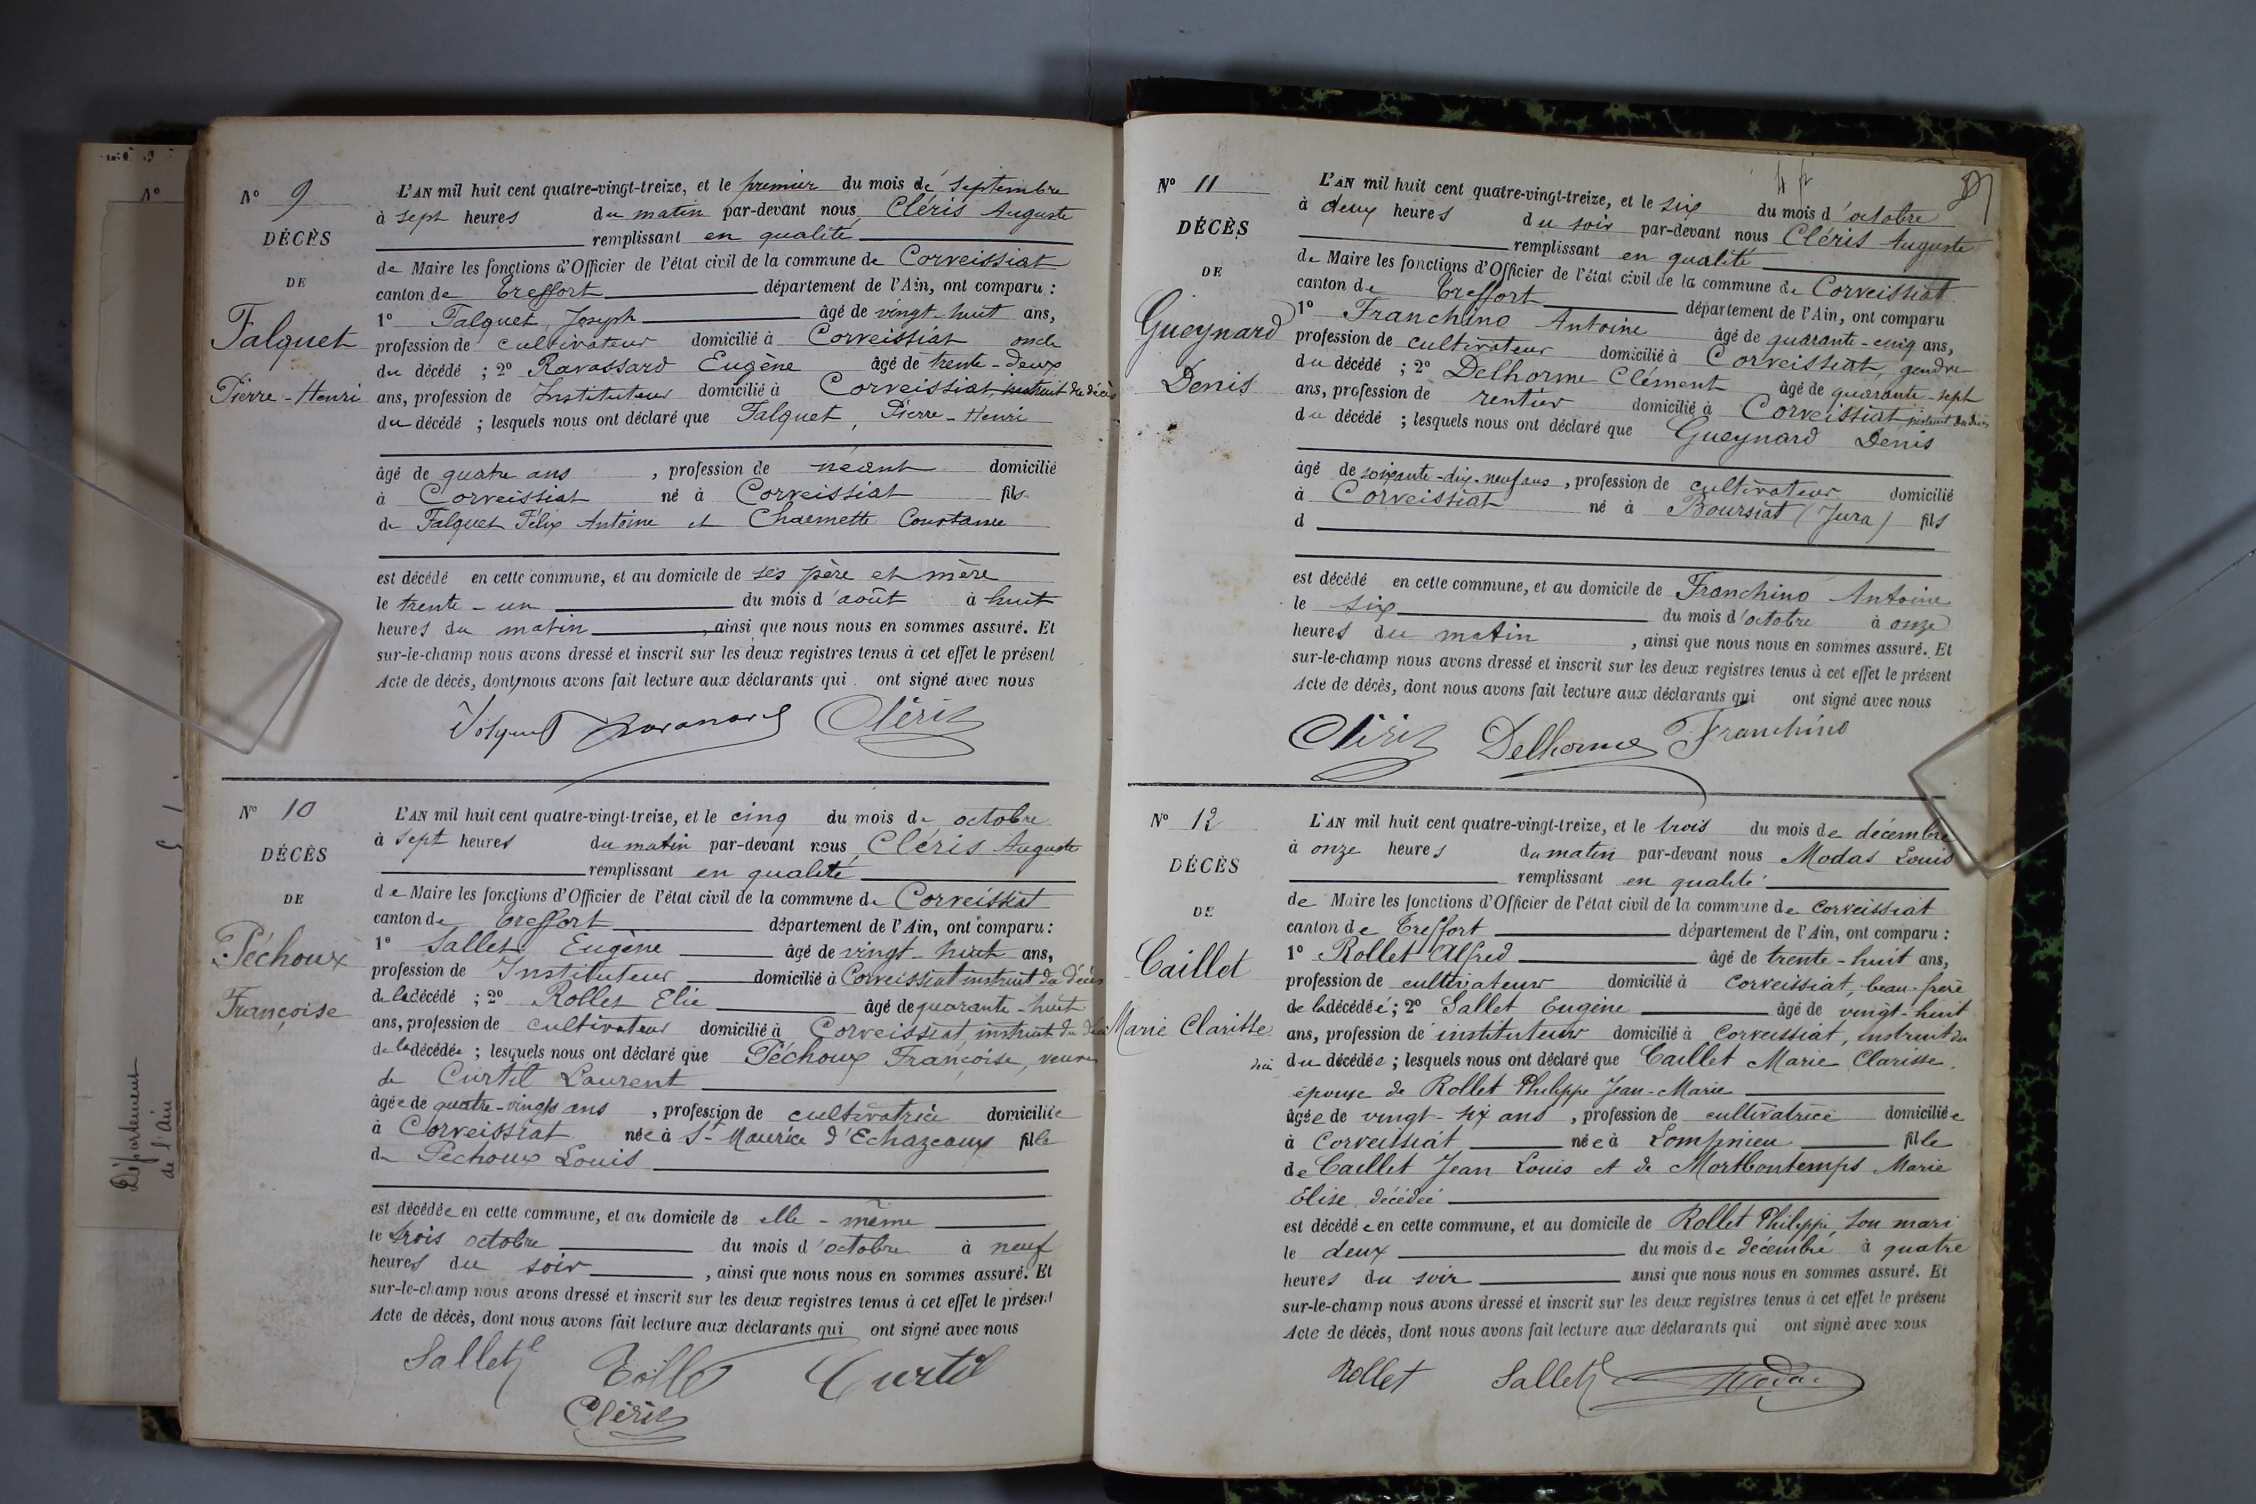 Nº 9
DÉCÈS
DE
Falquet
Pierre-Henri
L'AN mil huit cent quatre-vingt-treize, et le premier du mois de septembre
à sept heures du matin par-devant nous, Cléris Auguste
remplissant en qualité
de Maire les fonctions d'Officier de l'état civil de la commune de Corveissiat
canton de Treffort département de l'Ain, ont comparu :
1º Falquet Joseph âgé de vingt-huit ans,
profession de cultivateur domicilié à Corveissiat oncle
du décédé ; 2º Ravassard Eugène âgé de trente-deux
ans, profession de Instituteur domicilié à Corveissiat, instruit du décès
du décédé ; lesquels nous ont déclaré que Falquet, Pierre-Henri
âgé de quatre ans , profession de néant domicilié
à Corveissiat né à Corveissiat fils
de Falquet Félix Antoine et Charnette Constance
est décédé en cette commune, et au domicile de ses père et mère
le trente-un du mois d'août à huit
heures du matin , ainsi que nous nous en sommes assuré. Et
sur-le-champ nous avons dressé et inscrit sur les deux registres tenus à cet effet le présent
Acte de décès, dont nous avons fait lecture aux déclarants qui ont signé avec nous
Falquet Ravassard Cléris
Nº 10
DÉCÈS
DE
Péchoux
Françoise
L'AN mil huit cent quatre-vingt-treize, et le cinq du mois de octobre
à sept heures du matin par-devant nous, Cléris Auguste
remplissant en qualité
de Maire les fonctions d'Officier de l'état civil de la commune de Corveissiat
canton de Treffort département de l'Ain, ont comparu :
1º Sallet Eugène âgé de vingt-huit ans,
profession de Instituteur domicilié à Corveissiat instruit du décès
de la décédé ; 2º Rollet Elie âgé de quarante-huit
ans, profession de cultivateur domicilié à Corveissiat, instruit du décès
de la décédée ; lesquels nous ont déclaré que Péchoux Françoise, veuve
de Curtil Laurent
âgée de quatre-vingts ans , profession de cultivatrice domiciliée
à Corveissiat née à St-Maurice d'Echazeaux fille
de Péchoux Louis
est décédée en cette commune, et au domicile de elle-même
le trois octobre du mois d'octobre à neuf
heures du soir , ainsi que nous nous en sommes assuré. Et
sur-le-champ nous avons dressé et inscrit sur les deux registres tenus à cet effet le présent
Acte de décès, dont nous avons fait lecture aux déclarants qui ont signé avec nous
Sallet E Rollet Curtil
Cléris
Nº 11
DÉCÈS
DE
Gueynard
Denis
L'AN mil huit cent quatre-vingt-treize, et le six du mois d'octobre
à deux heures du soir par-devant nous Cléris Auguste
remplissant en qualité
de Maire les fonctions d'Officier de l'état civil de la commune de Corveissiat
canton de Treffort département de l'Ain, ont comparu
1º Franchino Antoine âgé de quarante-cinq ans,
profession de cultivateur domicilié à Corveissiat, gendre
du décédé ; 2º Delhorme Clément âgé de quarante-sept
ans, profession de rentier domicilié à Corveissiat, instruit du décès
du décédé ; lesquels nous ont déclaré que Gueynard Denis
âgé de soixante-dix-neuf ans, profession de cultivateur domicilié
à Corveissiat né à Boursiat (Jura) fils
d
est décédé en cette commune, et au domicile de Franchino Antoine
le six du mois d'octobre à onze
heures du matin , ainsi que nous nous en sommes assuré. Et
sur-le-champ nous avons dressé et inscrit sur les deux registres tenus à cet effet le présent
Acte de décès, dont nous avons fait lecture aux déclarants qui ont signé avec nous
Cléris Delhorme Franchino
Nº 12
DÉCÈS
DE
Caillet
Marie Clarisse
L'AN mil huit cent quatre-vingt-treize, et le trois du mois de décembre
à onze heures du matin par-devant nous Modas Louis
remplissant en qualité
de Maire les fonctions d'Officier de l'état civil de la commune de Corveissiat
canton de Treffort département de l'Ain, ont comparu :
1º Rollet Alfred âgé de trente-huit ans,
profession de cultivateur domicilié à Corveissiat, beau-frère
de la décédéé ; 2º Sallet Eugène âgé de vingt-huit
ans, profession de instituteur domicilié à Corveissiat, instruit du
décès du décédée ; lesquels nous ont déclaré que Caillet Marie Clarisse,
épouse de Rollet Philippe Jean-Marie
âgée de vingt-six ans , profession de cultivatrice domiciliée
à Corveissiat née à Lompnieu fille
de Caillet Jean Louis et de Mortbontemps Marie
Elise décédée
est décédée en cette commune, et au domicile de Rollet Philippe, son mari
le deux du mois de décembre à quatre
heures du soir ainsi que nous nous en sommes assuré. Et
sur-le-champ nous avons dressé et inscrit sur les deux registres tenus à cet effet le présent
Acte de décès, dont nous avons fait lecture aux déclarants qui ont signé avec nous
Rollet Sallet E Modas
Nº
Département
de l'Ain